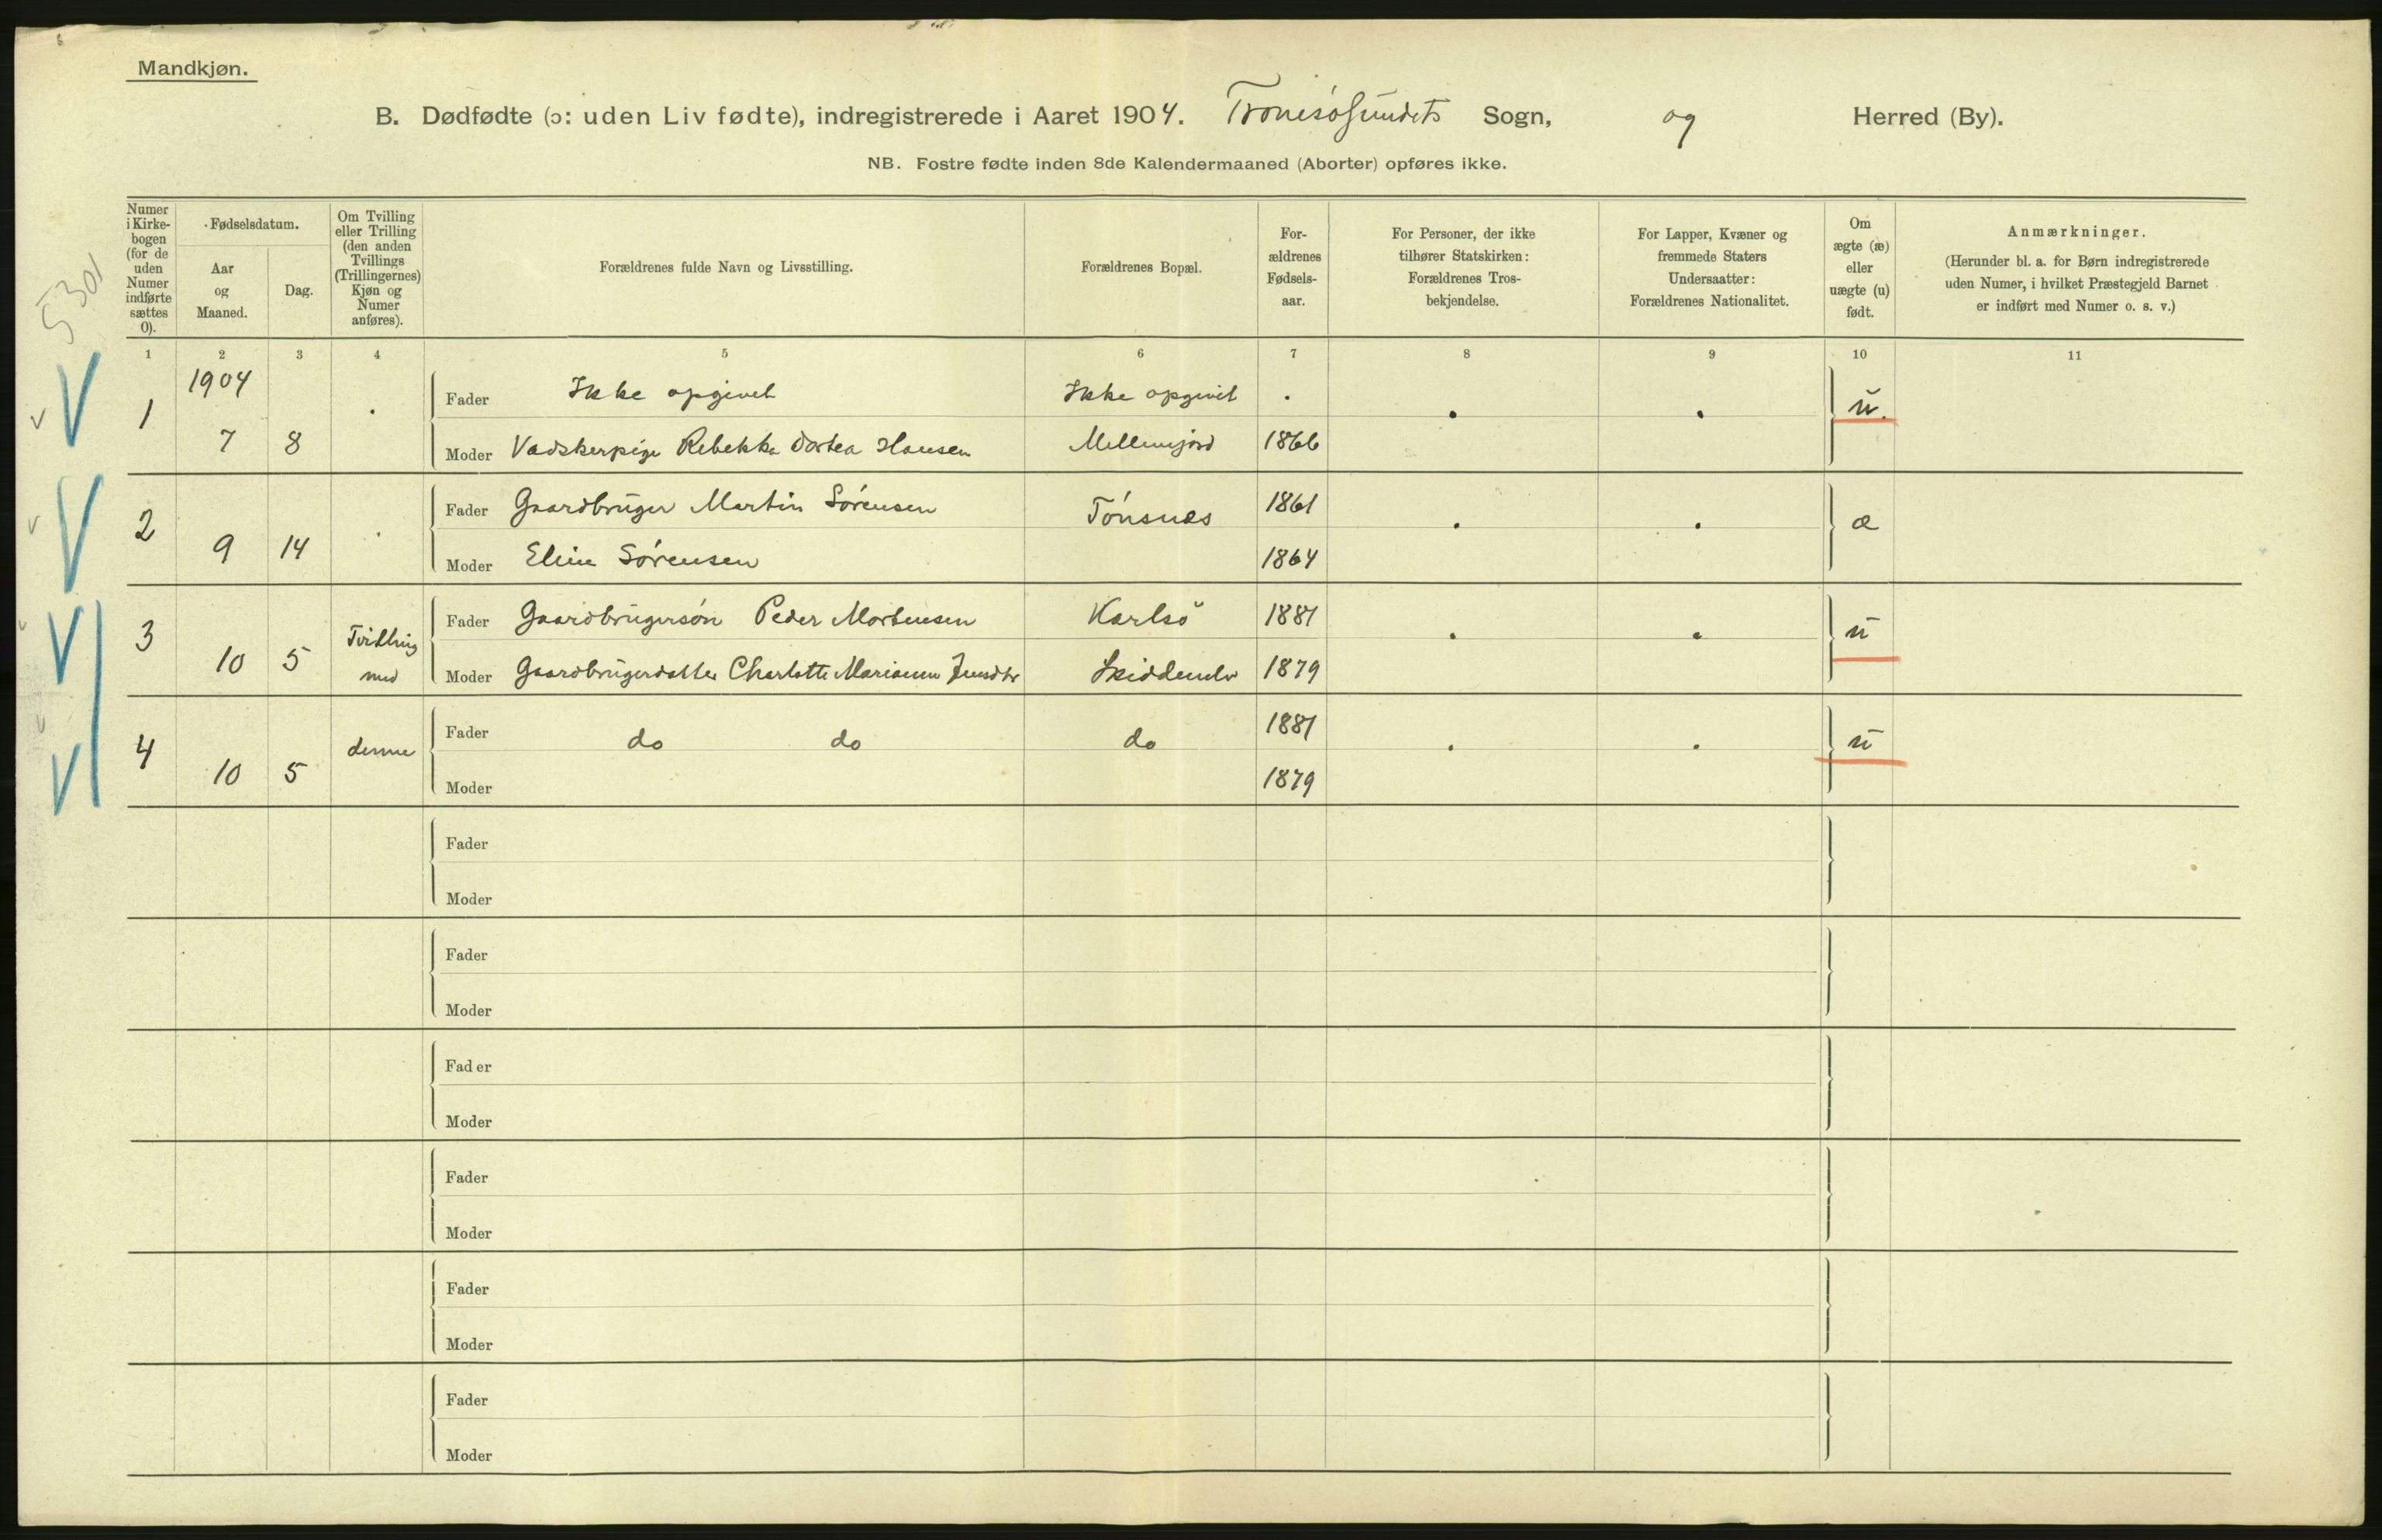 Mandkjøn.
B. Dødfødte (ɔ: uden Liv fødte), indregistrerede i Aaret 1904. Tromsøsundets Sogn, og Herred (By).
NB. Fostre fødte inden 8de Kalendermaaned (Aborter) opføres ikke.
5301
Numer i Kirke-bogen (for de uden Numer indførte sættes 0).
Fødselsdatum.
Aar og Maaned.
Dag.
Om Tvilling eller Trilling (den anden Tvillings (Trillingernes) Kjøn og Numer anføres).
Forældrenes fulde Navn og Livsstilling.
Forældrenes Bopæl.
For-ældrenes Fødsels-aar.
For Personer, der ikke tilhører Statskirken: Forældrenes Tros-bekjendelse.
For Lapper, Kvæner og fremmede Staters Undersaatter: Forældrenes Nationalitet.
Om ægte (æ) eller uægte (u) født.
Anmærkninger.
(Herunder bl. a. for Børn indregistrerede uden Numer, i hvilket Præstegjeld Barnet er indført med Numer o. s. v.)
1 2 3 4 5 6 7 8 9 10 11
1904
1 Fader Ikke opgivet Ikke opgivet . . . u.
7 8 Moder Vadskerpige Rebekka Dortea Hansen Mellemjord 1866
2 Fader Gaardbruger Martin Sørensen Tønsnes 1861 . . æ
9 14 Moder Eline Sørensen 1864
3 Tvilling Fader Gaardbrugersøn Peder Mortensen Karlsö 1881 . . u
10 5 med Moder Gaardbrugerdatter Charlotte Marianne 1879
4 denne Fader do do do 1881 . . u
10 5 Moder 1879
Fader
Moder
Fader
Moder
Fader
Moder
Fader
Moder
Fader
Moder
Fader
Moder